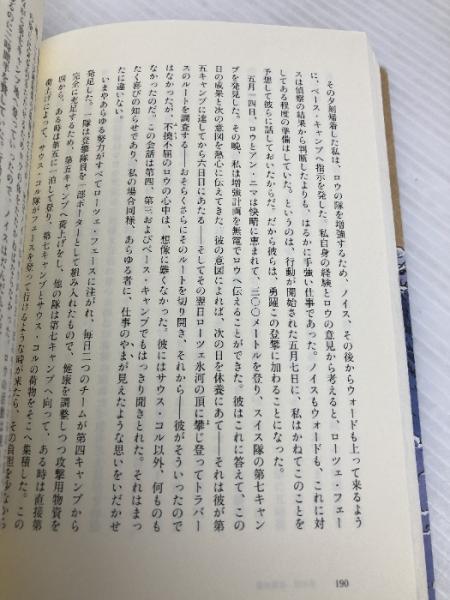 その夕刻帰着した私は、ロウの隊を増強するため、ノイス、その後からウォードも上って来るよう
に、ベース・キャンプへ指示を発した。私自身の経験とロウの意見から考えると、ローツェ・フェー
スは偵察の結果から判断したよりも、はるかに手強い仕事であった。ノイスもウォードも、これに対
してある程度の準備はしていた。というのは、行動が開始された五月七日に、私はかねてこのことを
予想して彼らに話しておいたからだ。だから彼らは、勇躍この登攀に加わることになった。
五月一四日、ロウとアン・ニマは快晴に恵まれて、三〇〇メートルを登り、スイス隊の第七キャン
プを発見した。その晩、私は増強計画を無電でロウへ伝えることができた。彼はこれに答えて、この
日の成果と次の意図を熱心に伝えてきた。彼の意図によれば、次の日を休養にあて――それは彼が第
五キャンプに達してから六日目にあたる――そしてその翌日ローツェ氷河の頂に攀じ登ってトラバー
スのルートを調査する――おそらくさらにそのルートを切り開き、それから――彼がそういったので
はなかったが、不撓不屈のロウの心中は、想像に難くなかった。彼にはサウス・コル以外、何ものも
なかったのだ。この会話は第四、第三およびベース・キャンプでもはっきり聞きとれた。それはまっ
たく喜びの知らせであり、私の場合同様、あらゆる者に、仕事のやまが見えたような思いをいだかせ
たに違いない。
いまやあらゆる努力がすべてローツェ・フェースに注がれ、毎日二つのチームが第四キャンプから
発足した。一隊は登攀隊員を一部ポーターとして組み入れたもので、健康を調整しつつ攻撃用物資を
完全に充足するため、第五キャンプへ荷上げをし、他の隊は第七キャンプへ向って、ある時は直接第
四から、ある時は第五に一泊して登り、第七キャンプとサウス・コルの荷物をそこへ集積した。この
荷上げによって、サウス・コル隊がフェースを登って行けるような時が来たら、その負担を少なから
190